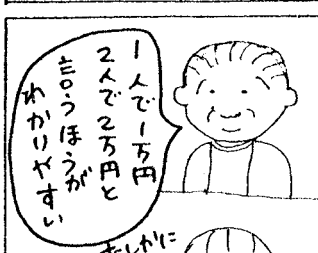 1人で1万円
2人で2万円と
言うほうが
わかりやすい
たしかに